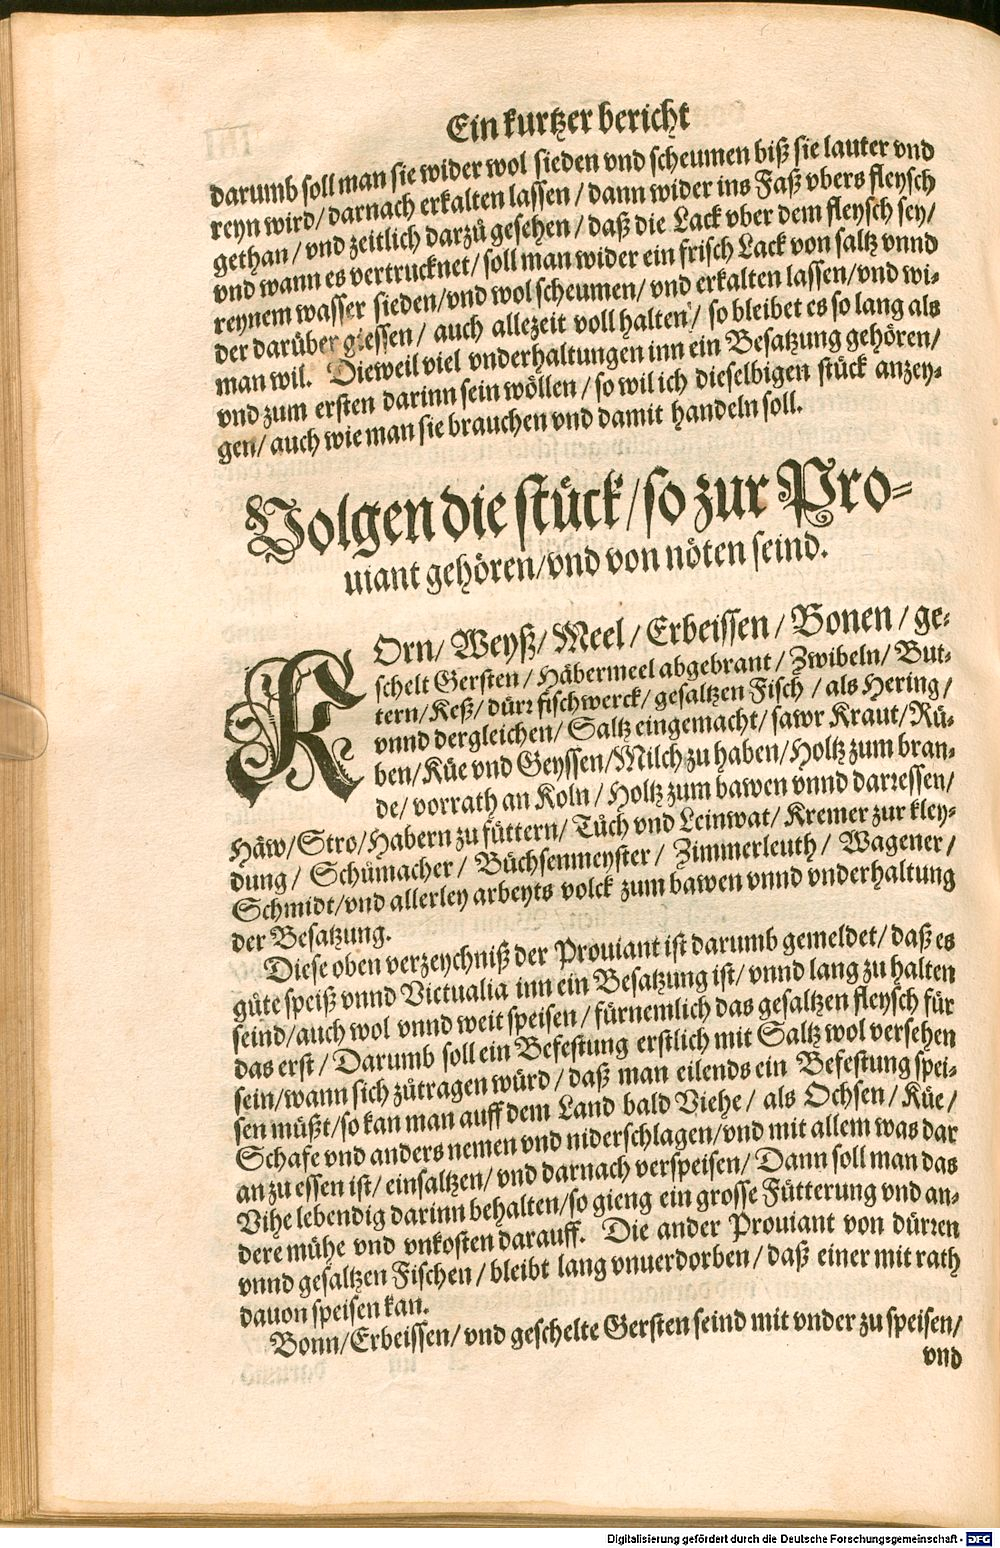 Ein kurtzer bericht
darumb soll man sie wider wol sieden vnd scheumen biß sie lauter vnd
reyn wird/ darnach erkalten lassen / dann wider ins Faß vbers fleysch
gethan / vnd zeitlich darzů gesehen / daß die Lack vber dem fleysch sey/
vnd wann es vertrucknet/ soll man wider ein frisch Lack von saltz vnnd
reynem wasser sieden/vnd wol scheumen/ vnd erkalten lassen/vnd wi-
der darüber giessen/ auch allezeit voll halten/ so bleibet es so lang als
man wil. Dieweil viel vnderhaltungen inn ein Besatzung gehören/
vnd zum ersten darinn sein wöllen / so wil ich dieselbigen stück anzey-
gen/ auch wie man sie brauchen vnd damit handeln soll.
Volgen die stück/so zur Pro-
uiant gehören/vnd von nöten seind.
KOrn/ Weyß/ Meel / Erbeissen / Bonen / ge-
schelt Gersten / Häbermeel abgebrant / Zwibeln/ But-
tern/ Keß/ dürr fischwerck/ gesaltzen Fisch / als Hering/
vnnd dergleichen/ Saltz eingemacht/ sawr Kraut/ Rü-
ben/ Küe vnd Geyssen/Milch zu haben/Holtz zum bran-
de/ vorrath an Koln/ Holtz zum bawen vnnd darressen/
Häw/Stro/Habern zu füttern/ Tůch vnd Leinwat/ Kremer zur kley-
dung/ Schůmacher/ Büchsenmeyster/ Zimmerleuth/ Wagener/
Schmidt/vnd allerley arbeyts volck zum bawen vnnd vnderhaltung
der Besatzung.
Diese oben verzeychniß der Prouiant ist darumb gemeldet/ daß es
gůte speiß vnnd Victualia inn ein Besatzung ist/ vnnd lang zu halten
seind/auch wol vnnd weit speisen / fürnemlich das gesaltzen fleysch für
das erst / Darumb soll ein Befestung erstlich mit Saltz wol versehen
sein/wann sich zůtragen würd / daß man eilends ein Befestung spei-
sen müßt/so kan man auff dem Land bald Viehe / als Ochsen / Küe /
Schafe vnd anders nemen vnd niderschlagen/vnd mit allem was dar
an zu essen ist/ einsaltzen/ vnd darnach verspeisen/ Dann soll man das
Vihe lebendig darinn behalten/so gieng ein grosse Fütterung vnd an-
dere mühe vnd vnkosten darauff. Die ander Prouiant von dürren
vnnd gesaltzen Fischen / bleibt lang vnuerdorben / daß einer mit rath
dauon speisen kan.
Bonn/Erbeissen/ vnd geschelte Gersten seind mit vnder zu speisen/
vnd
Digitalisierung gefördert durch die Deutsche Forschungsgemeinschaft - DFG